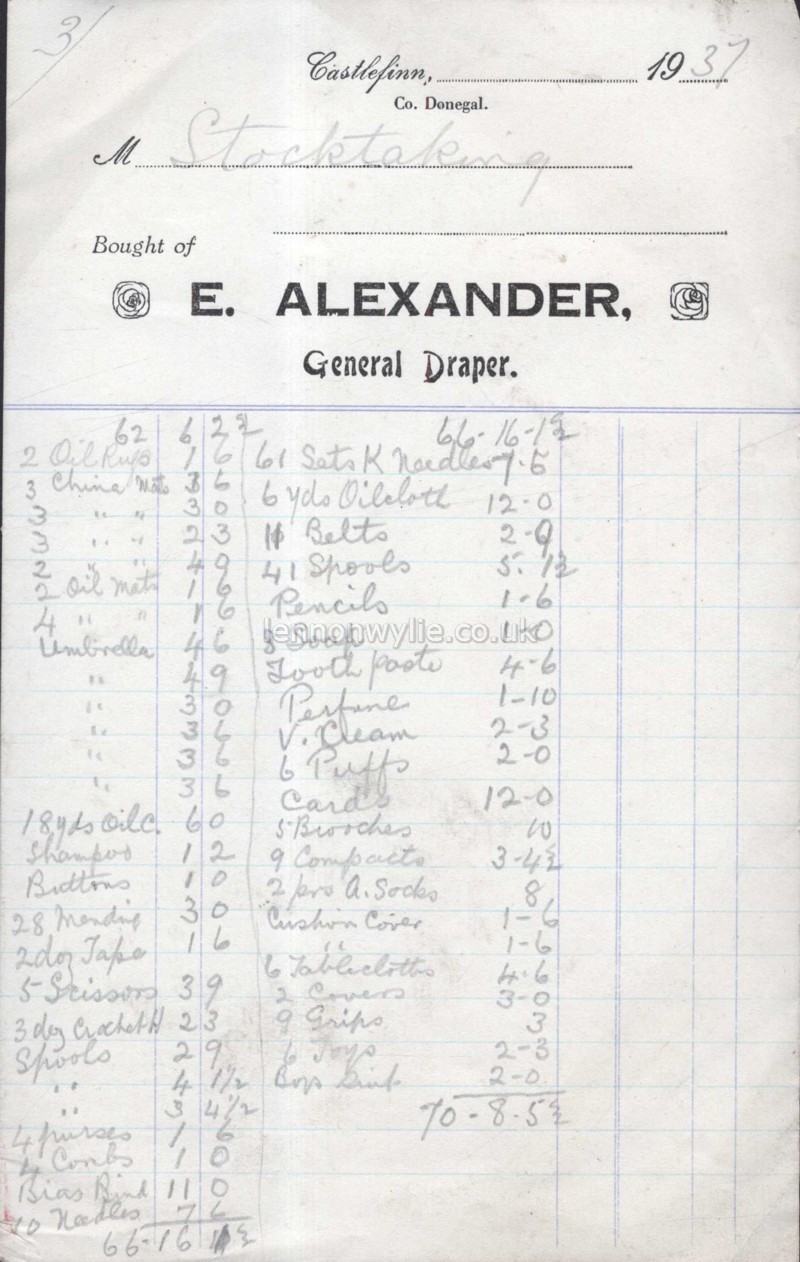 3/
Castlefinn, 1937
Co. Donegal.
M Stocktaking
Bought of
E. ALEXANDER,
General Draper.
62 6 2½
2 Oil Rugs 1 6
3 China Mats 3 6
3 " " 3 0
3 " " 2 3
2 " " 4 9
2 Oil Mats 1 6
4 " " 1 6
Umbrella 4 6
" 4 9
" 3 0
" 3 6
" 3 6
" 3 6
18 yds Oil C. 6 0
Shampoo 1 2
Buttons 1 0
28 Mending 3 0
2 doz Tape 1 6
5 Scissors 3 9
3 doz Crochet H 2 3
Spools 2 9
" 4 1½
" 3 4½
4 purses 1 6
4 Combs 1 0
Bias Bind 11 0
10 Needles 7 6
66-16 1½
66-16-1½
61 Sets K Needles 7-5
6 yds Oilcloth 12-0
11 Belts 2-9
41 Spools 5-1½
Pencils 1-6
3 Soap 1-0
Tooth paste 4-6
Perfume 1-10
V. Cream 2-3
6 Puffs 2-0
Cards 12-0
5 Brooches 10
9 Compacts 3-4½
2 prs A. Socks 8
Cushion Cover 1-6
" 1-6
6 Tablecloths 4-6
2 Covers 3-0
9 Grips 3
6 Toys 2-3
Boys 2-0
70-8-5½
lennonwylie.co.uk